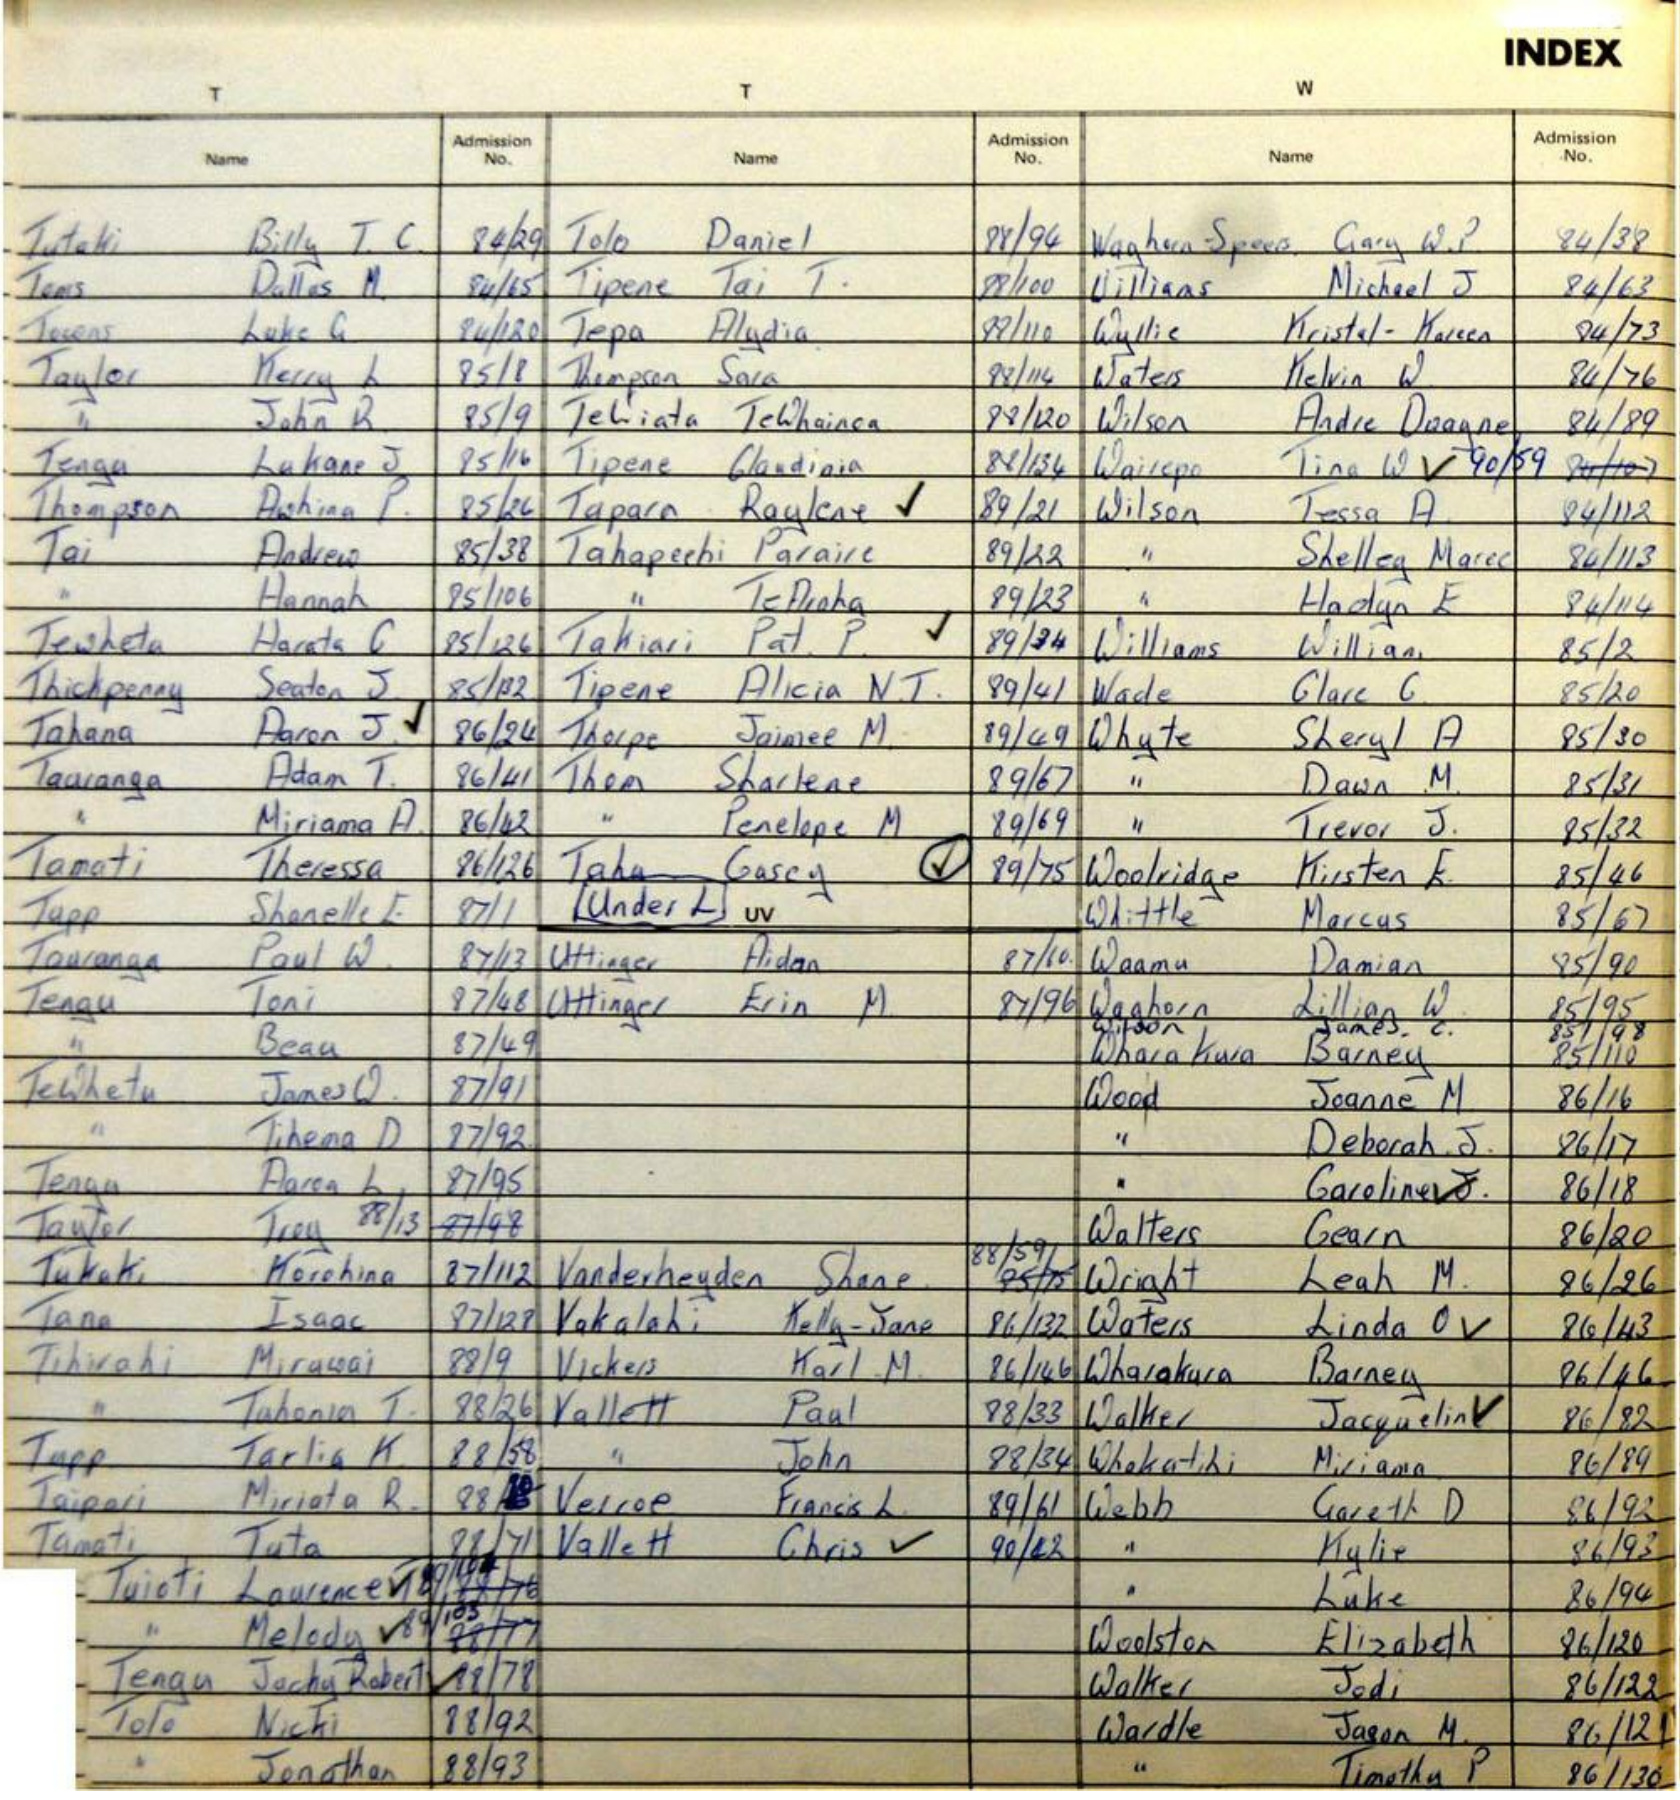 INDEX
T T W
Name Admission No. Name Admission No. Name Admission No.
Tutaki Billy T. C. 84/29
Toms Dallas M. 84/65
Towns Luke G 84/120
Taylor Kerry L 85/8
" John R. 85/9
Tengu Lukane J 85/16
Thompson P. 85/26
Tai Andrew 85/38
" Hannah 85/106
Tewhetu Harata C 85/126
Thickpenny Seaton J. 85/132
Tahana Aaron J. ✓ 86/24
Tauranga Adam T. 86/41
" Miriama A. 86/42
Tamati Theressa 86/126
Tapp Shanelle E 87/1
Tauranga Paul W. 87/13
Tengu Toni 87/48
" Beau 87/49
TeWhetu James W. 87/91
" Tihema D 87/92
Tengu Aaron L. 87/95
Taylor Troy 88/13 87/98
Tukaki Korohina 87/112
Tana Isaac 87/128
Tihirahi Mirawai 88/9
" T. 88/26
Tapp Tarlia K. 88/58
Taipari Miriata R. 88/
Tamati Tuta 88/71
Tuioti Laurence ✓ 89/104 88/76
" Melody ✓ 89/103 88/77
Tengu Jachy Robert ✓ 88/78
Tolo Nicki 88/92
" Jonathan 88/93
Tolo Daniel 88/94
Tipene Tai T. 88/100
Tepa Alydia 88/110
Thompson Sara 88/114
TeWiata TeWhainoa 88/120
Tipene Claudinia 88/134
Tapara Raylene ✓ 89/21
Tahapeehi Paraire 89/22
" TeAroha 89/23
Takiari Pat. P. ✓ 89/34
Tipene Alicia N.T. 89/41
Thorpe Jaimee M. 89/49
Thom Sharlene 89/67
" Penelope M 89/69
Taha Casey ✓ 89/75
[Under L] UV
Uttinger Aidan 87/10.
Uttinger Erin M. 87/96
Vanderheyden Shane 88/59/ 85/75
Vakalahi Kelly-Jane 86/132
Vickers Karl M. 86/146
Vallett Paul 88/33
" John 88/34
Vercoe Francis L. 89/61
Vallett Chris ✓ 90/42
Waghorn-Speers Gary W.P 84/38
Williams Michael J 84/63
Wyllie Kristal-Kareen 84/73
Waters Kelvin W 84/76
Wilson Andre Duagne 84/89
Wairepo Tina W ✓ 90/59 84/107
Wilson Tessa A. 84/112
" Shelley Maree 84/113
" Hadyn E 84/114
Williams William 85/2
Wade Clare C. 85/20
Whyte Sheryl A 85/30
" Dawn M. 85/31
" Trevor J. 85/32
Woolridge Kirsten E. 85/46
Whittle Marcus 85/67
Waamu Damian 85/90
Waghorn Lillian W. 85/95
Wilson James. C. 85/98
Wharakura Barney 85/110
Wood Joanne M 86/16
" Deborah J. 86/17
" Caroline ✓ J. 86/18
Walters Gearn 86/20
Wright Leah M. 86/26
Waters Linda O ✓ 86/43
Wharakura Barney 86/46
Walker Jacquelin ✓ 86/82
Whakatihi Miriama 86/89
Webb Gareth D 86/92
" Kylie 86/93
" Luke 86/94
Woolston Elizabeth 86/120
Walker Jodi 86/122
Wardle Jason M. 86/121
" Timothy P 86/130